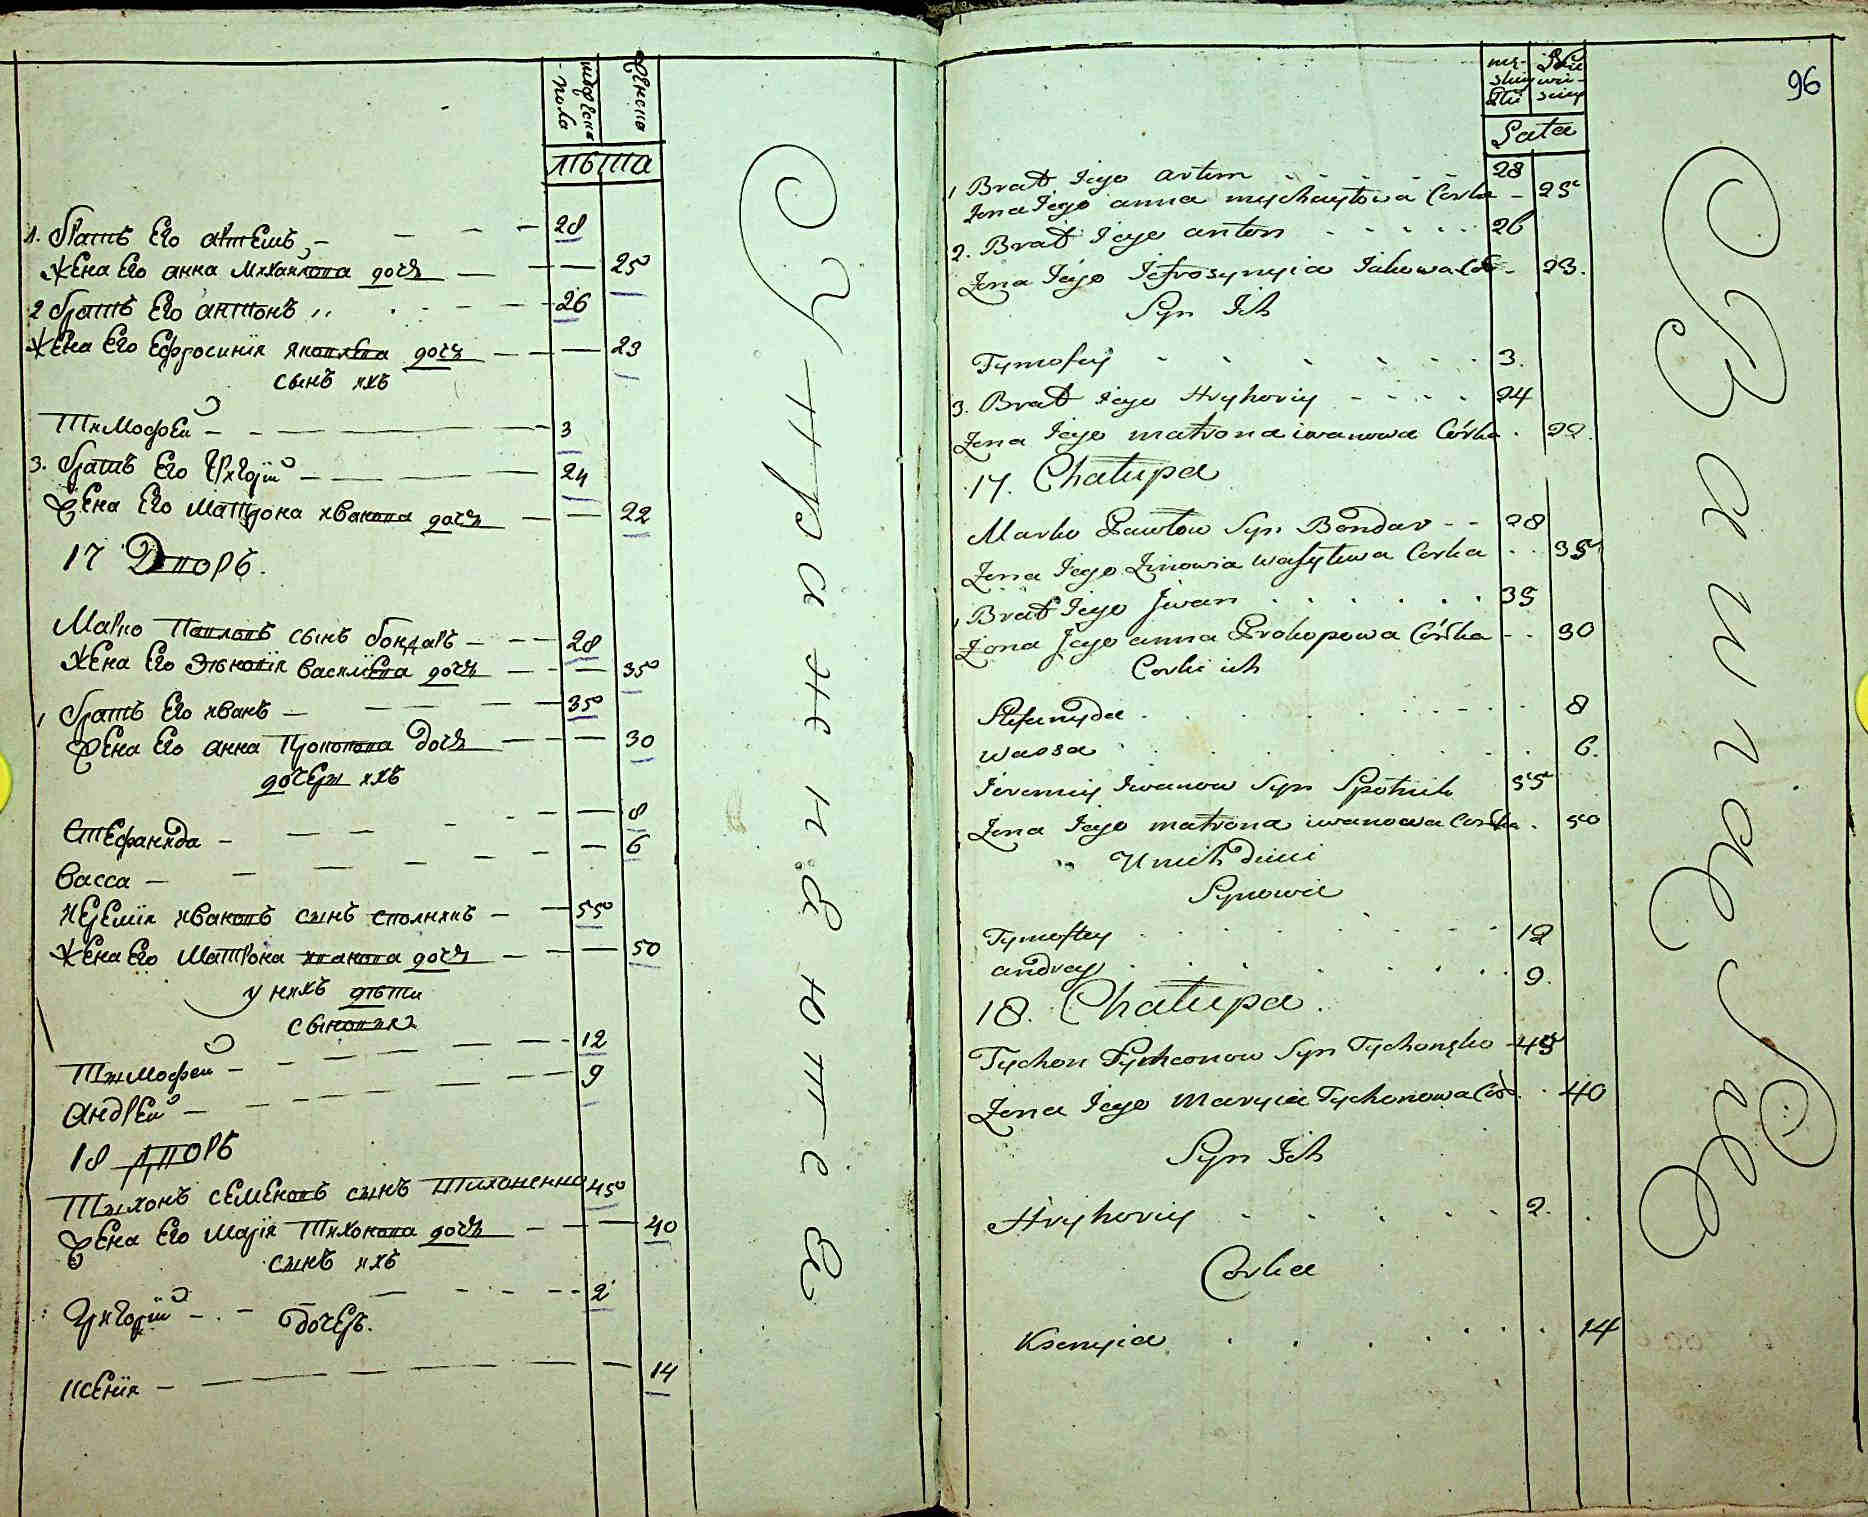 мужеска пола
Женска
лѣта
1. братъ Его артемъ 28
Жена Его анна Михаилова дочь 25
2 братъ Его антонъ 26
Жена Его Ефросинія Яковлева дочь 23
сынъ ихъ
Тимофей 3
3. братъ Его Григорій 24
Жена Его Матрона иванова дочь 22
17 Дворъ.
Марко Павловъ сынъ бондарь 28
Жена Его Зѣновія василіева дочь 35
1 братъ Его иванъ 35
Жена Его анна Прокопова дочь 30
дочеры ихъ
Стефанида 8
Васса 6
иеремія ивановъ сынъ сполникъ 55
Жена Его Матрона иванова дочь 50
у нихъ дѣти
сыновья
Тымофей 12
Андрей 9
18 дворъ
Тыхонъ семеновъ сынъ Тихоненко 45
Жена Его Марія Тихонова дочь 40
сынъ ихъ
Григорій 2
дочерь.
Ксенія 14
96
męskiey Płci
Lata
1 Brat Jego artem 28
Zona Jego anna mychayłowa Corka 25
2. Brat Jego anton 26
Zona Jego Jefrosynyia Jakowa Cór 23.
Syn Ich
Tymofey 3.
3. Brat Jego Hryhoriy 24
Zona Jego matrona iwanowa Córka 22.
17. Chałupa
Marko Pawłow Syn Bondar 28
Zona Jego Zinowia wasylewa Corka 35
1 Brat Jego Jwan 35
Zona Jego anna Prokopowa Córka 30
Corki ich
Stefanyda 8
wassa 6.
Jeremiy Jwanow Syn Społnik 55
Zona Jego matrona iwanowa Corka 50
U nich dzieci
Synowie
Tymoftey 12
andrey 9.
18. Chałupa.
Tychon Symeonow Syn Tychonęko 45
Zona Jego Maryia Tychonowa Cór. 40
Syn Ich
Hryhoriy 2.
Corka
Ksenyia 14